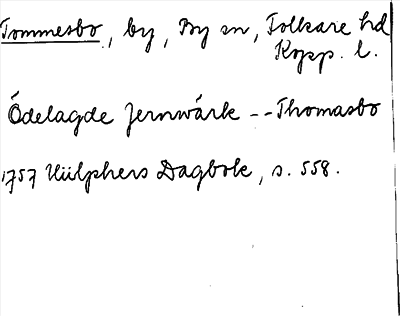 Tommesbo, by, By sn, Folkare hd
Kopp. l.
Ödelagde Jernwärk -- Thomasbo
1757 Hülphers Dagbok, s. 558.